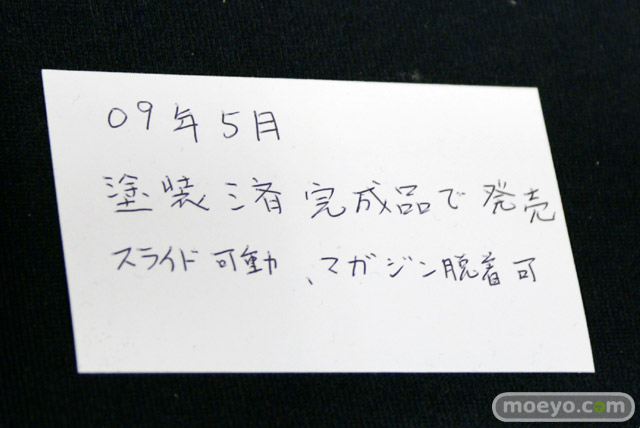 09年5月
塗装済完成品で発売
スライド可動、マガジン脱着可
moeyo.com